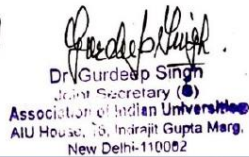 Gurdeep Singh.
Dr Gurdeep Singh
Joint Secretary (●)
Association of Indian Universities
AIU House, 16, Indrajit Gupta Marg,
New Delhi-110002